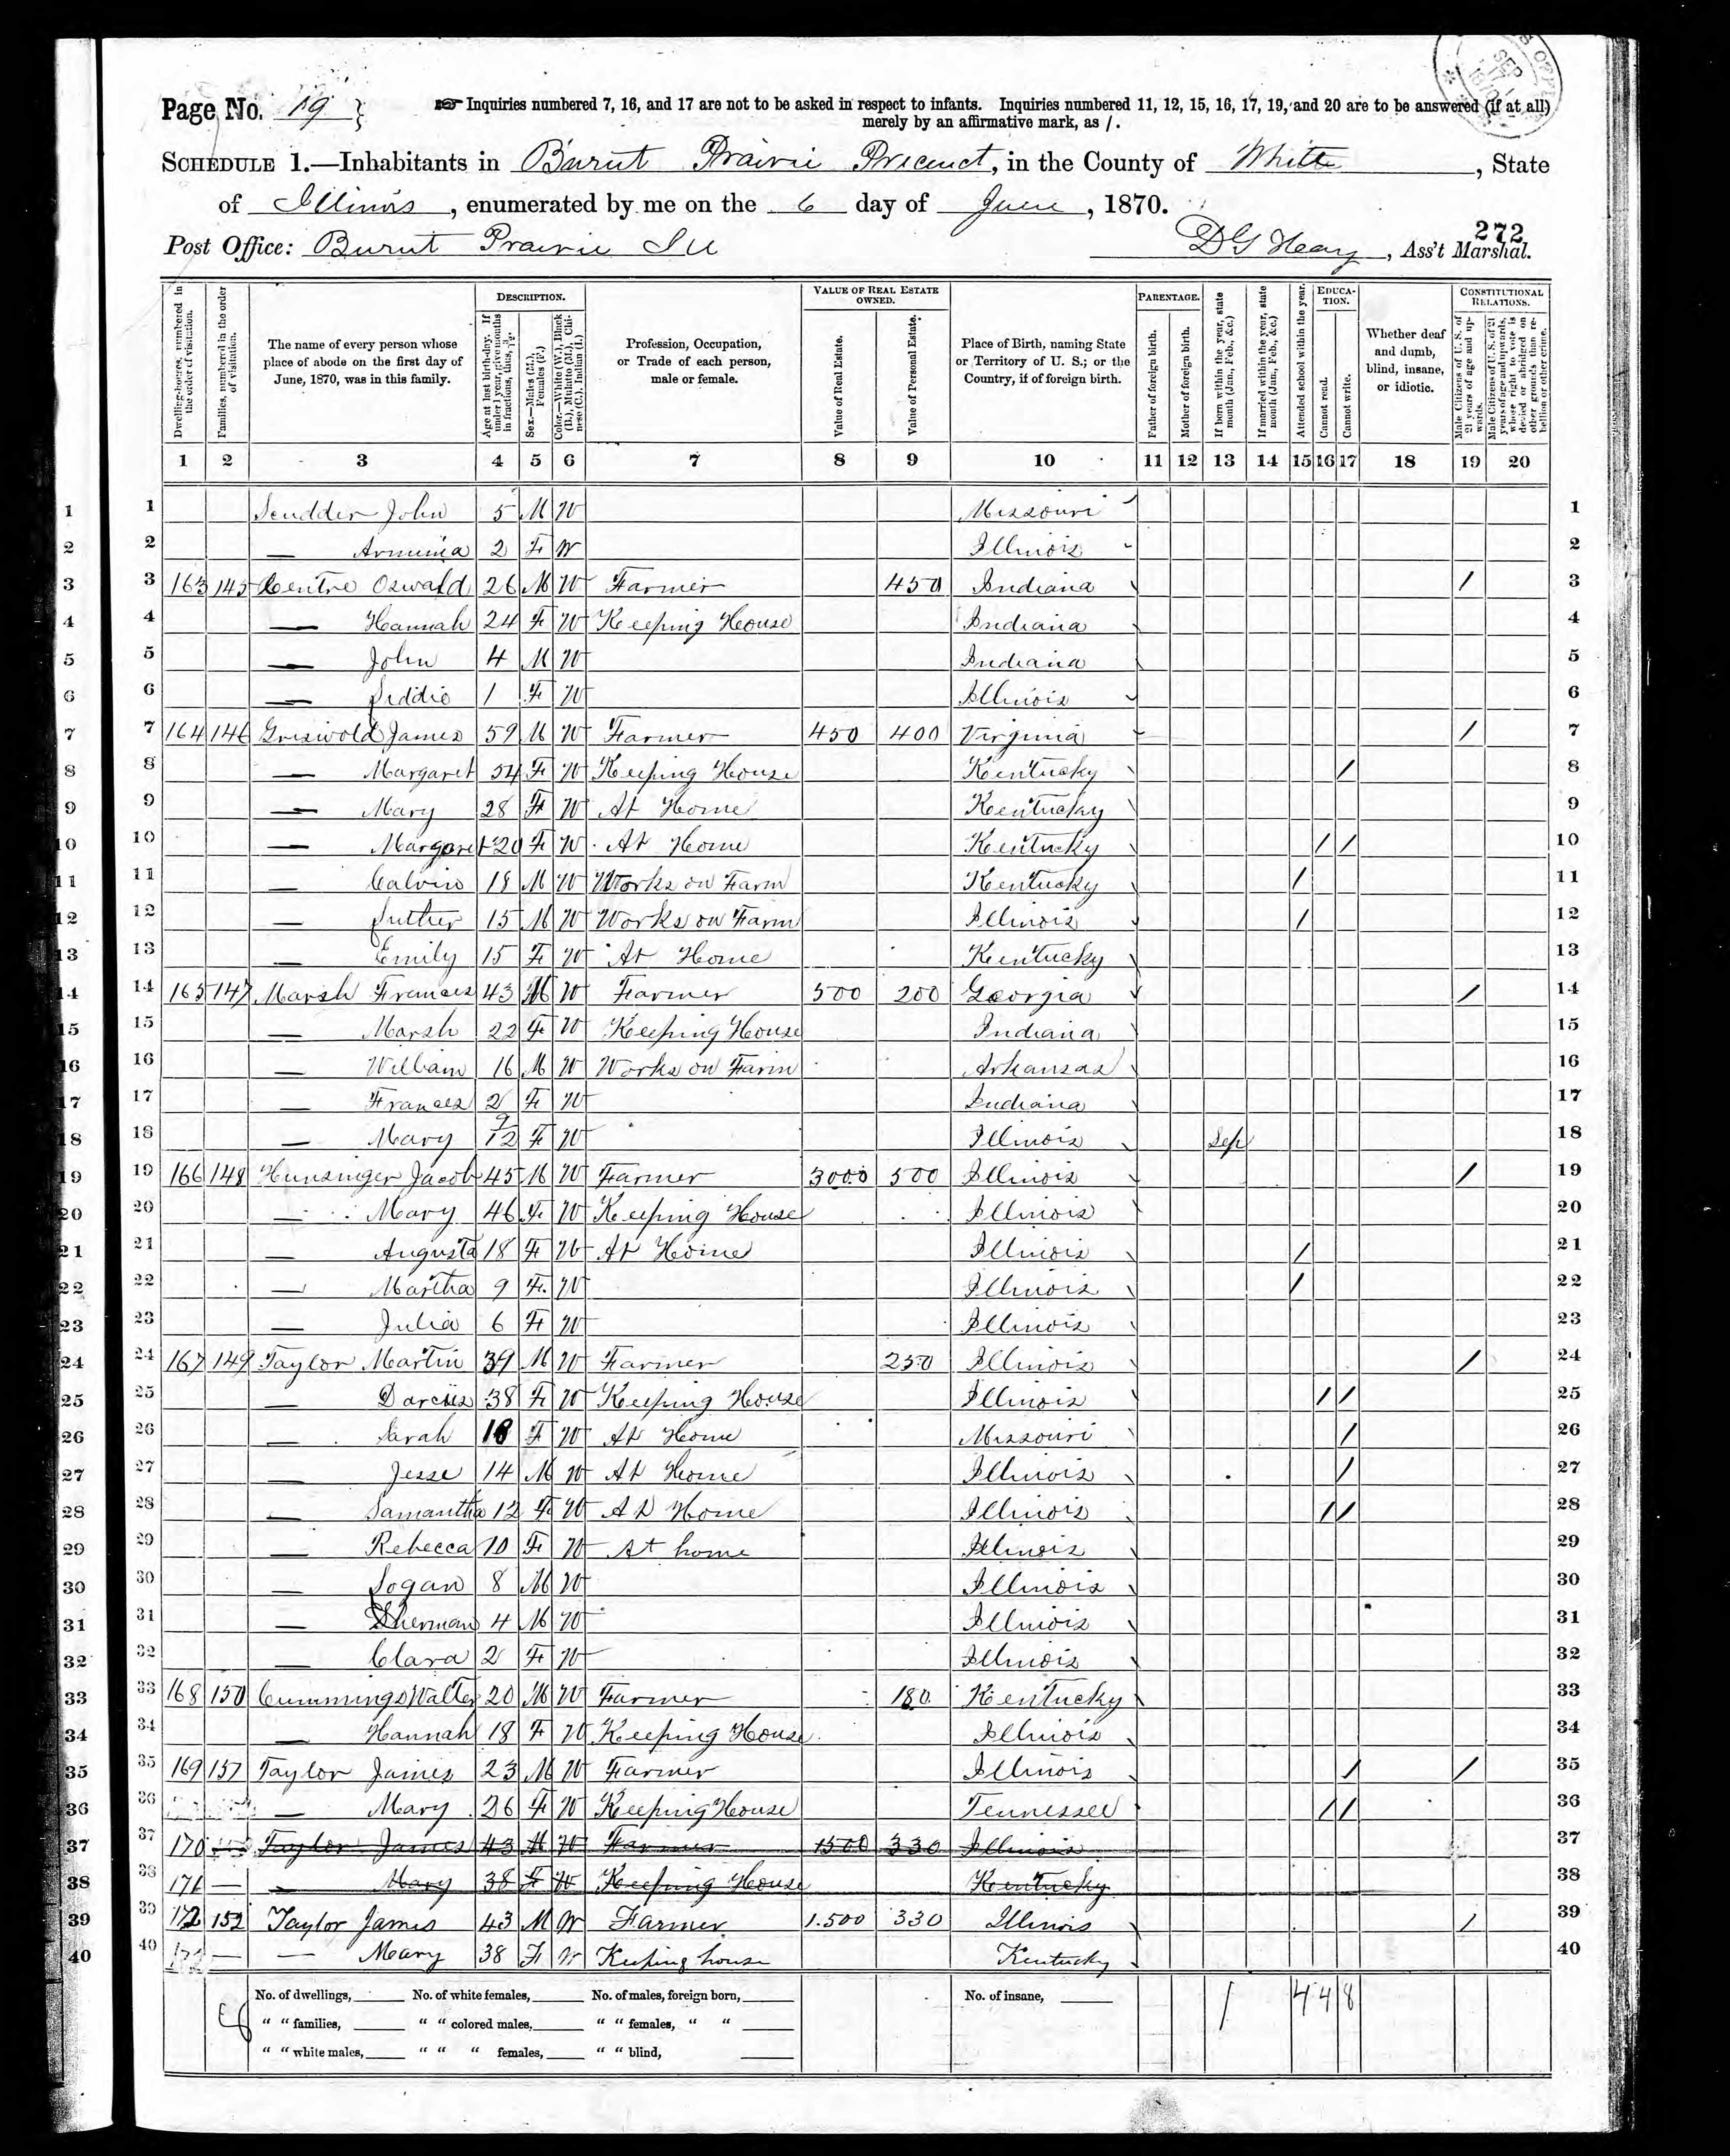 Page No. 19 } Inquiries numbered 7, 16, and 17 are not to be asked in respect to infants. Inquiries numbered 11, 12, 15, 16, 17, 19, and 20 are to be answered (if at all)
merely by an affirmative mark, as /.
SCHEDULE 1.—Inhabitants in Burnt Prairie Precinct, in the County of White, State
of Illinois, enumerated by me on the 6 day of June, 1870.
272
Post Office: Burnt Prairie Ill D G Heay, Ass't Marshal.
Dwelling-houses, numbered in the order of visitation.
Families, numbered in the order of visitation.
The name of every person whose place of abode on the first day of June, 1870, was in this family.
DESCRIPTION.
Age at last birth-day. If under 1 year, give months in fractions, thus, 3/12.
Sex.—Males (M.), Females (F.)
Color.—White (W.), Black (B.), Mulatto (M.), Chinese (C.), Indian (I.)
Profession, Occupation, or Trade of each person, male or female.
VALUE OF REAL ESTATE OWNED.
Value of Real Estate.
Value of Personal Estate.
Place of Birth, naming State or Territory of U. S.; or the Country, if of foreign birth.
PARENTAGE.
Father of foreign birth.
Mother of foreign birth.
If born within the year, state month (Jan., Feb., &c.)
If married within the year, state month (Jan., Feb., &c.)
Attended school within the year.
EDUCATION.
Cannot read.
Cannot write.
Whether deaf and dumb, blind, insane, or idiotic.
CONSTITUTIONAL RELATIONS.
Male Citizens of U. S. of 21 years of age and upwards.
Male Citizens of U. S. of 21 years of age and upwards, whose right to vote is denied or abridged on other grounds than rebellion or other crime.
1 2 3 4 5 6 7 8 9 10 11 12 13 14 15 16 17 18 19 20
1 1 Scudder John 5 M W Missouri 1
2 2 — Armina 2 F W Illinois 2
3 3 163 145 Centre Oswald 26 M W Farmer 450 Indiana / 3
4 4 — Hannah 24 F W Keeping House Indiana 4
5 5 — John 4 M W Indiana 5
6 6 — Liddie 1 F W Illinois 6
7 7 164 146 Griswold James 59 M W Farmer 450 400 Virginia / 7
8 8 — Margaret 54 F W Keeping House Kentucky / 8
9 9 — Mary 28 F W At Home Kentucky 9
10 10 — Margaret 20 F W At Home Kentucky / / 10
11 11 — Calvin 18 M W Works on Farm Kentucky / 11
12 12 — Luther 15 M W Works on Farm Illinois / 12
13 13 — Emily 15 F W At Home Kentucky 13
14 14 165 147 Marsh Frances 43 M W Farmer 500 200 Georgia / 14
15 15 — Marsh 22 F W Keeping House Indiana 15
16 16 — William 16 M W Works on Farm Arkansas 16
17 17 — Frances 2 F W Indiana 17
18 18 — Mary 9/12 F W Illinois Sep 18
19 19 166 148 Hunsinger Jacob 45 M W Farmer 3000 500 Illinois / 19
20 20 — Mary 46 F W Keeping House Illinois 20
21 21 — Augusta 18 F W At Home Illinois / 21
22 22 — Martha 9 F W Illinois / 22
23 23 — Julia 6 F W Illinois 23
24 24 167 149 Taylor Martin 39 M W Farmer 250 Illinois / 24
25 25 — Darcus 38 F W Keeping House Illinois / / 25
26 26 — Sarah 18 F W At Home Missouri / 26
27 27 — Jesse 14 M W At Home Illinois / 27
28 28 — Samantha 12 F W At Home Illinois / / 28
29 29 — Rebecca 10 F W At home Illinois 29
30 30 — Logan 8 M W Illinois 30
31 31 — Sherman 4 M W Illinois 31
32 32 — Clara 2 F W Illinois 32
33 33 168 150 Cummings Walter 20 M W Farmer 180 Kentucky 33
34 34 — Hannah 18 F W Keeping House Illinois 34
35 35 169 151 Taylor James 23 M W Farmer Illinois / / 35
36 36 — Mary 26 F W Keeping House Tennessee / / 36
37 37 170 Taylor James 43 M W Farmer 1500 330 Illinois 37
38 38 171 — — Mary 38 F W Keeping House Kentucky 38
39 39 172 152 Taylor James 43 M W Farmer 1.500 330 Illinois / 39
40 40 — — Mary 38 F W Keeping house Kentucky 40
No. of dwellings, No. of white females, No. of males, foreign born, No. of insane, 1 4 4 8
" " families, " " colored males, " " females, " "
" " white males, " " " females, " " blind,